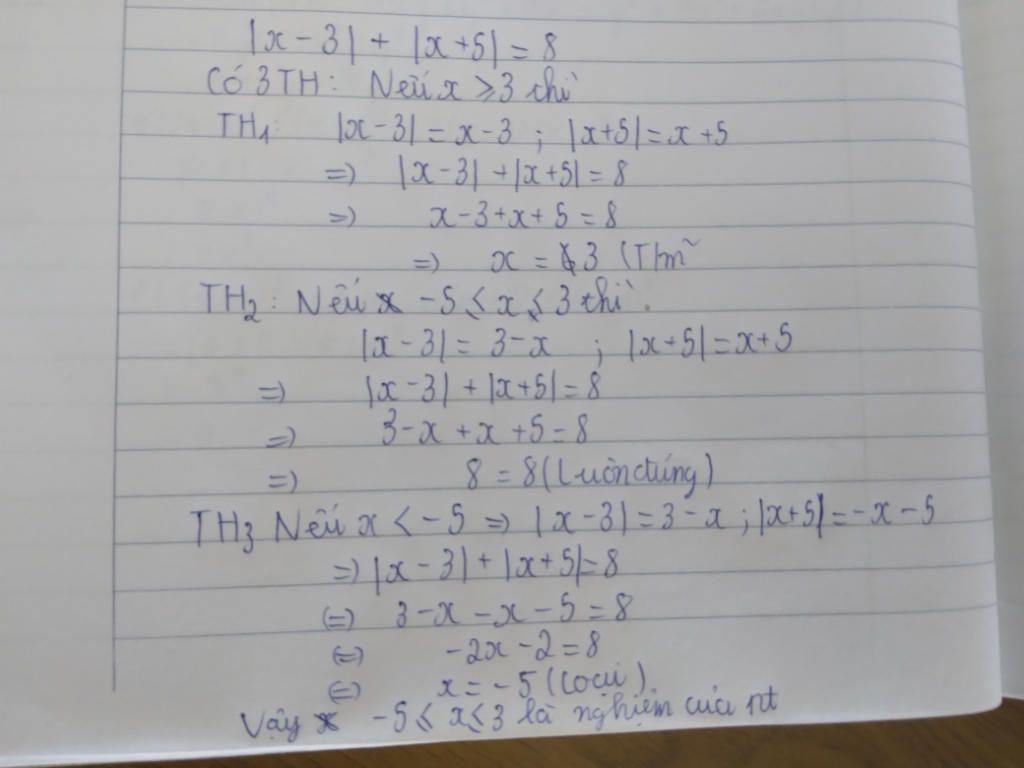 |x-3| + |x+5| = 8
Có 3TH: Nếu x ≥ 3 thì
TH1: |x-3| = x-3 ; |x+5| = x+5
=> |x-3| + |x+5| = 8
=> x-3+x+5 = 8
=> x = 3 (Tm
TH2: Nếu -5 ≤ x ≤ 3 thì.
|x-3| = 3-x ; |x+5| = x+5
=> |x-3| + |x+5| = 8
=> 3-x+x+5 = 8
=> 8 = 8 (Luôn đúng)
TH3 Nếu x < -5 => |x-3| = 3-x ; |x+5| = -x-5
=> |x-3| + |x+5| = 8
(=) 3-x-x-5 = 8
(=) -2x-2 = 8
(=) x = -5
Vậy -5 ≤ x ≤ 3 là nghiệm của pt